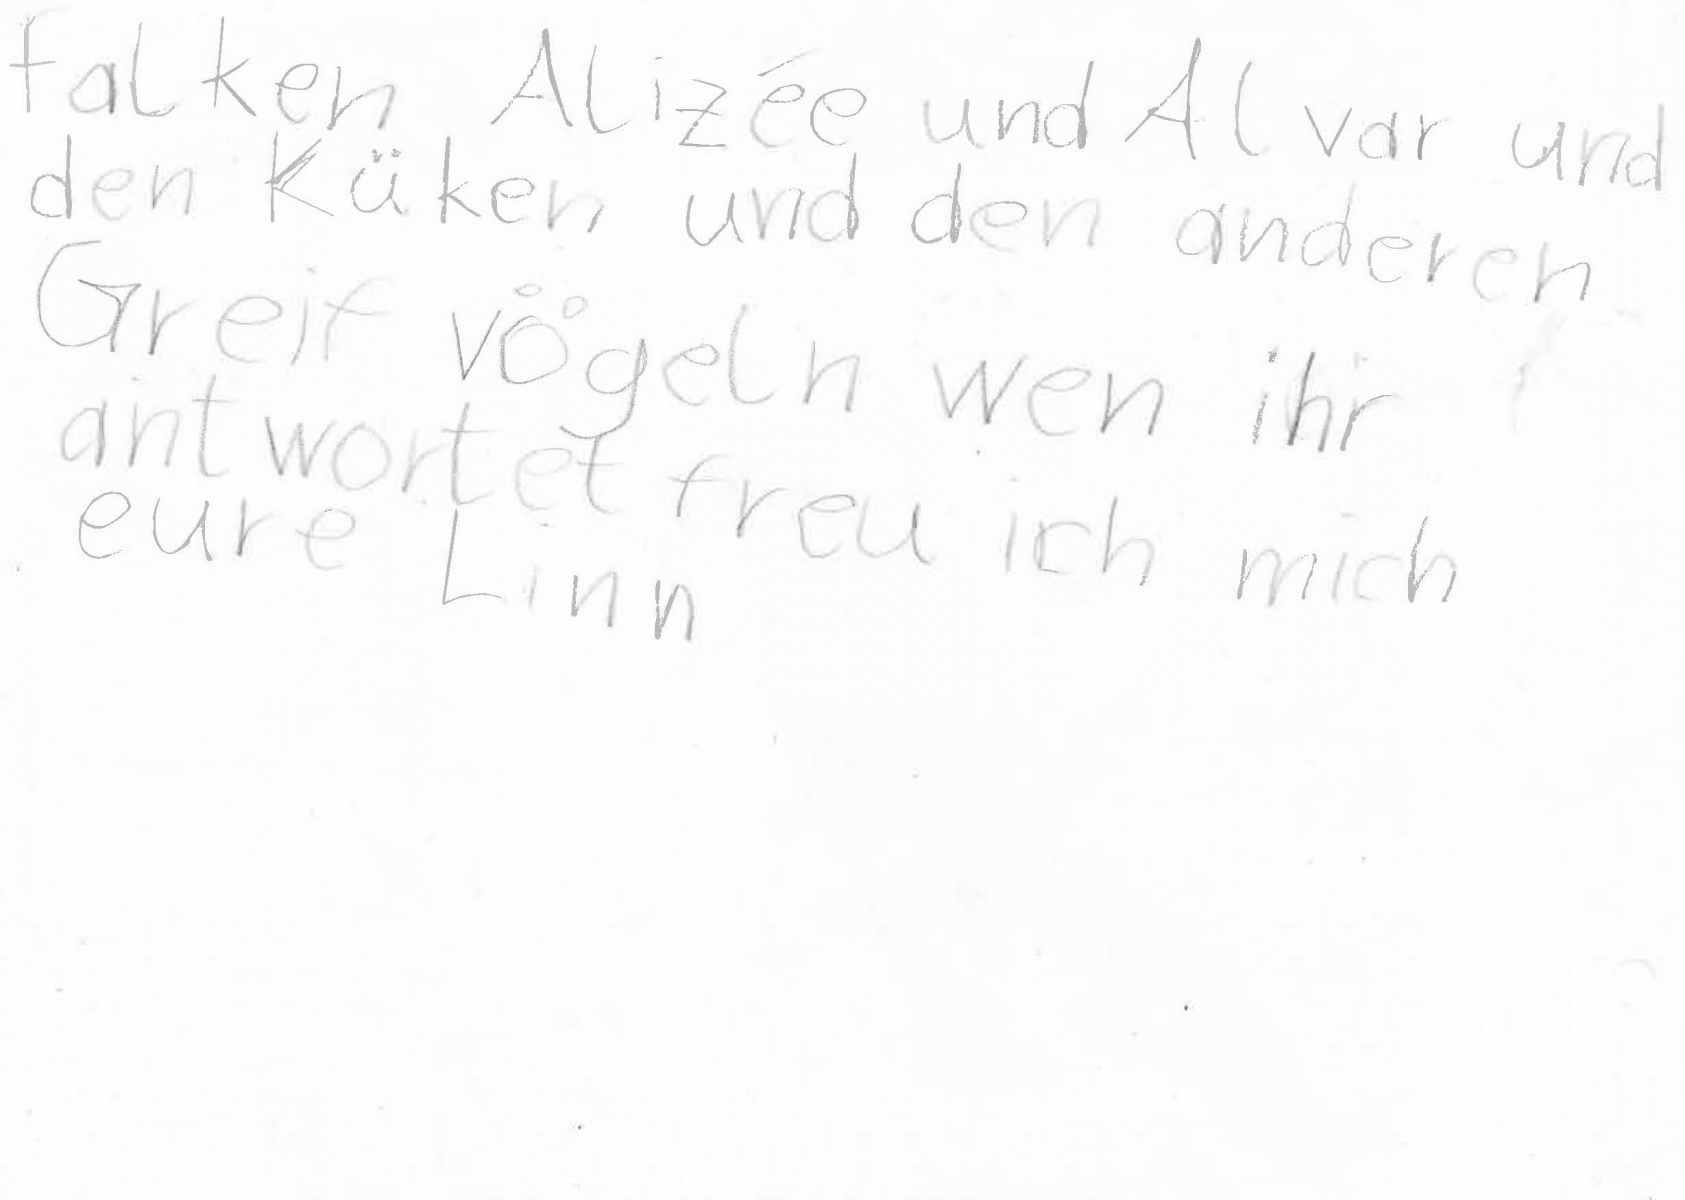 falken Alizée und Alvar und
den Küken und den anderen
Greifvögeln wen ihr
antwortet freu ich mich
eure Linn